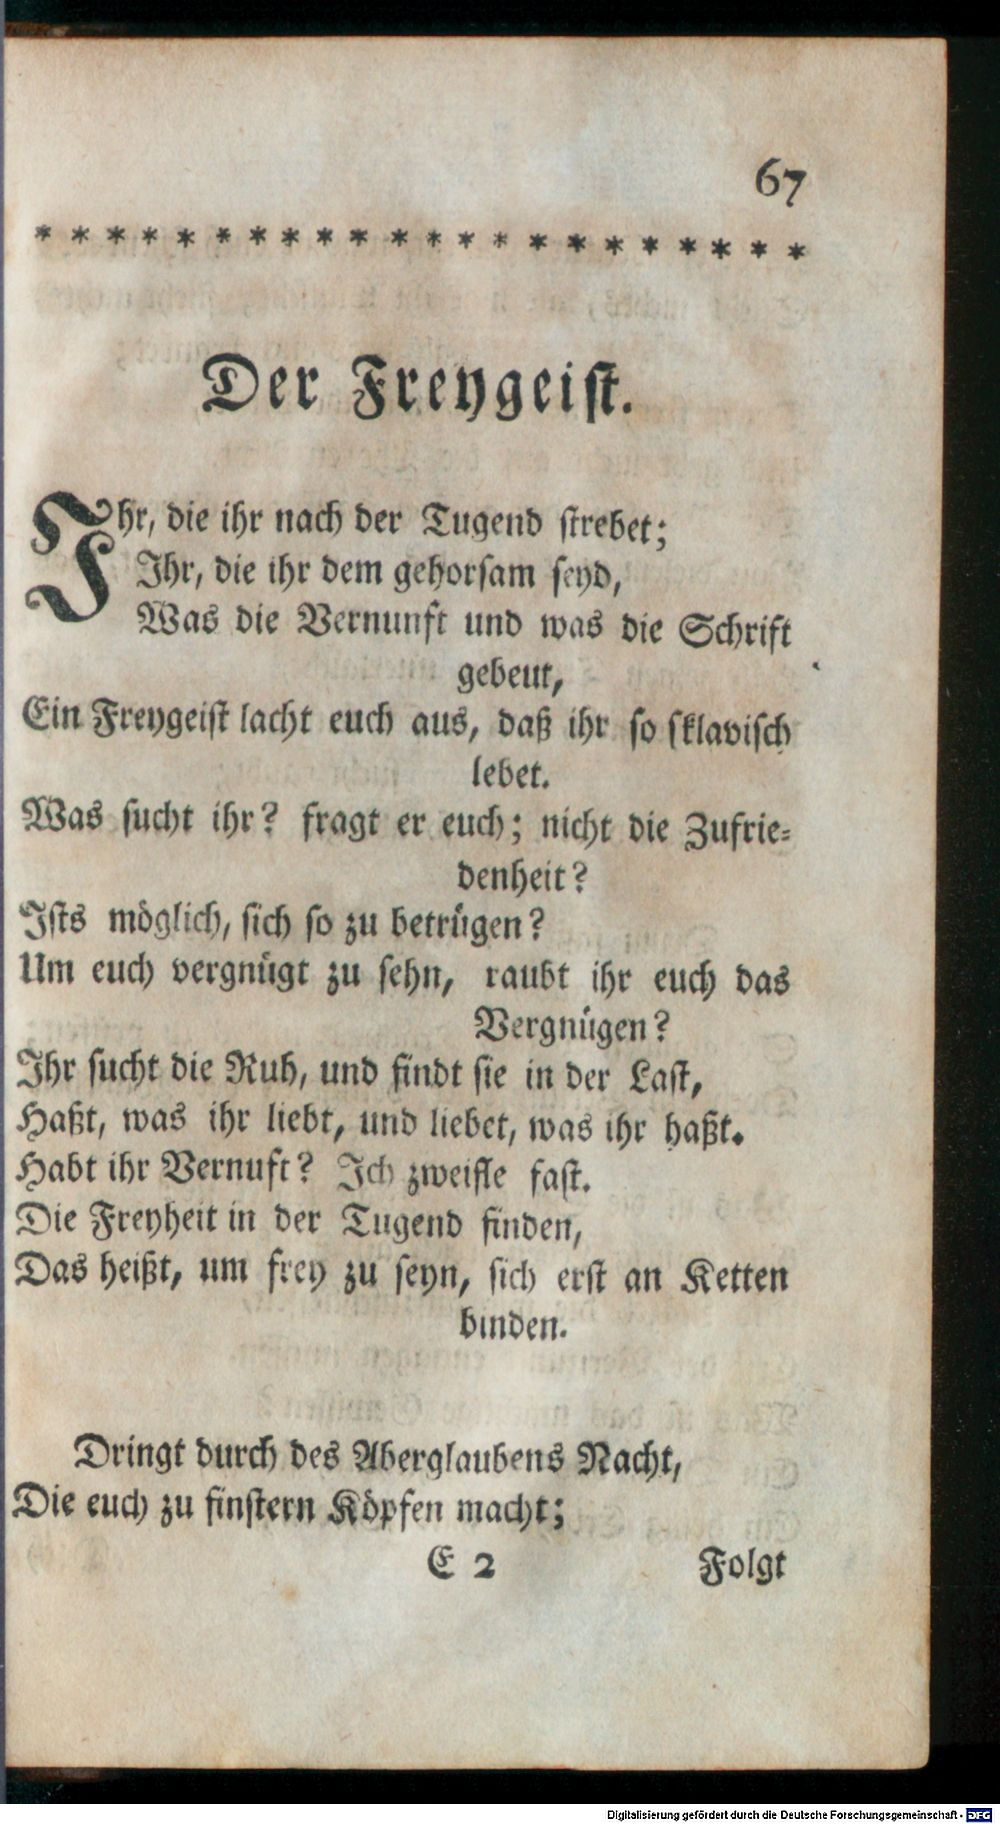 67
* * * * * * * * * * * * * * * * * * * * * *
Der Freygeist.
Ihr, die ihr nach der Tugend strebet;
Ihr, die ihr dem gehorsam seyd,
Was die Vernunft und was die Schrift
gebeut,
Ein Freygeist lacht euch aus, daß ihr so sklavisch
lebet.
Was sucht ihr? fragt er euch; nicht die Zufrie-
denheit?
Ists möglich, sich so zu betrügen?
Um euch vergnügt zu sehn, raubt ihr euch das
Vergnügen?
Ihr sucht die Ruh, und findt sie in der Last,
Haßt, was ihr liebt, und liebet, was ihr haßt.
Habt ihr Vernuft? Ich zweifle fast.
Die Freyheit in der Tugend finden,
Das heißt, um frey zu seyn, sich erst an Ketten
binden.
Dringt durch des Aberglaubens Nacht,
Die euch zu finstern Köpfen macht;
E 2 Folgt
Digitalisierung gefördert durch die Deutsche Forschungsgemeinschaft - DFG